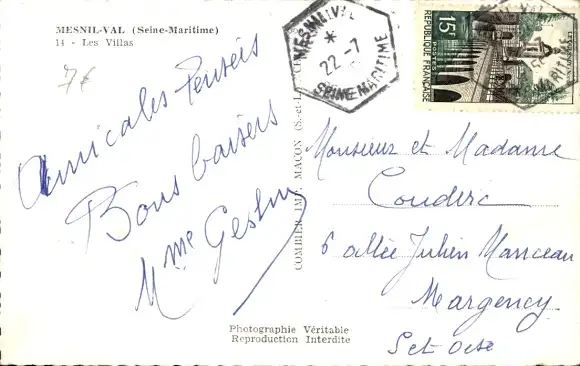 MESNIL-VAL (Seine-Maritime)
14 - Les Villas
7€
Amicales Pensées
Bons baisers
Mme Geslin
COMBIER IMP. MACON (S.-et-L.)
MESNIL-VAL
*
22-7
SEINE MARITIME
15F
POSTES
REPUBLIQUE FRANÇAISE
Monsieur et Madame
Couderc
6 allée Julien Manceau
Margency
Set Oise
Photographie Véritable
Reproduction Interdite